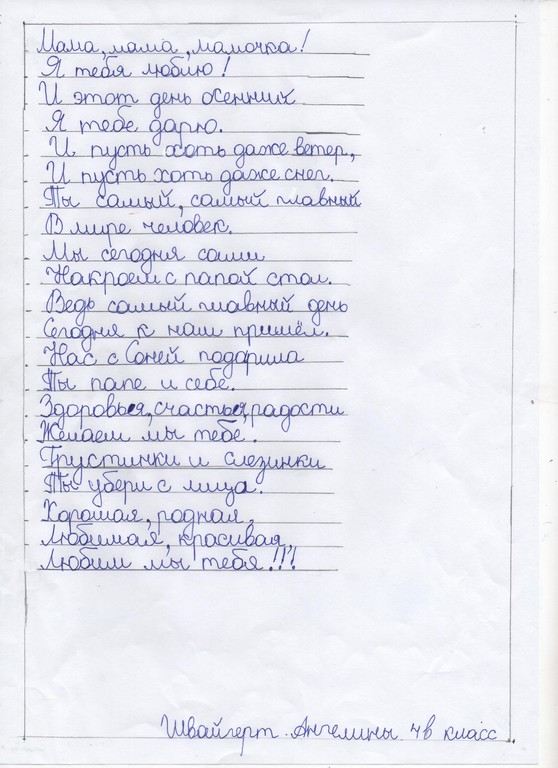 Мама, мама, мамочка!
Я тебя люблю!
И этот день осенний
Я тебе дарю.
И пусть хоть даже ветер,
И пусть хоть даже снег.
Ты самый, самый главный
В мире человек.
Мы сегодня сами
Накроем с папой стол.
Ведь самый главный день
Сегодня к нам пришёл.
Нас с Соней подарила
Ты папе и себе.
Здоровья, счастья, радости
Желаем мы тебе.
Грустинки и слезинки
Ты убери с лица.
Хорошая, родная,
Любимая, красивая,
Любим мы тебя!!!
Швайгерт Ангелины 4в класс